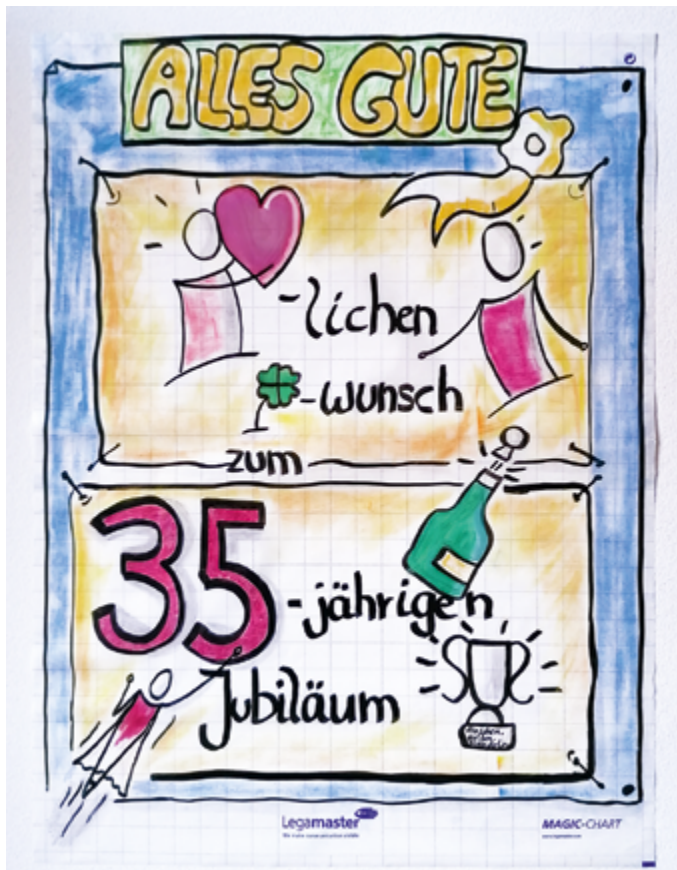 ALLES GUTE
-lichen
-wunsch
zum
35-jährigen
Jubiläum
Legamaster
MAGIC-CHART